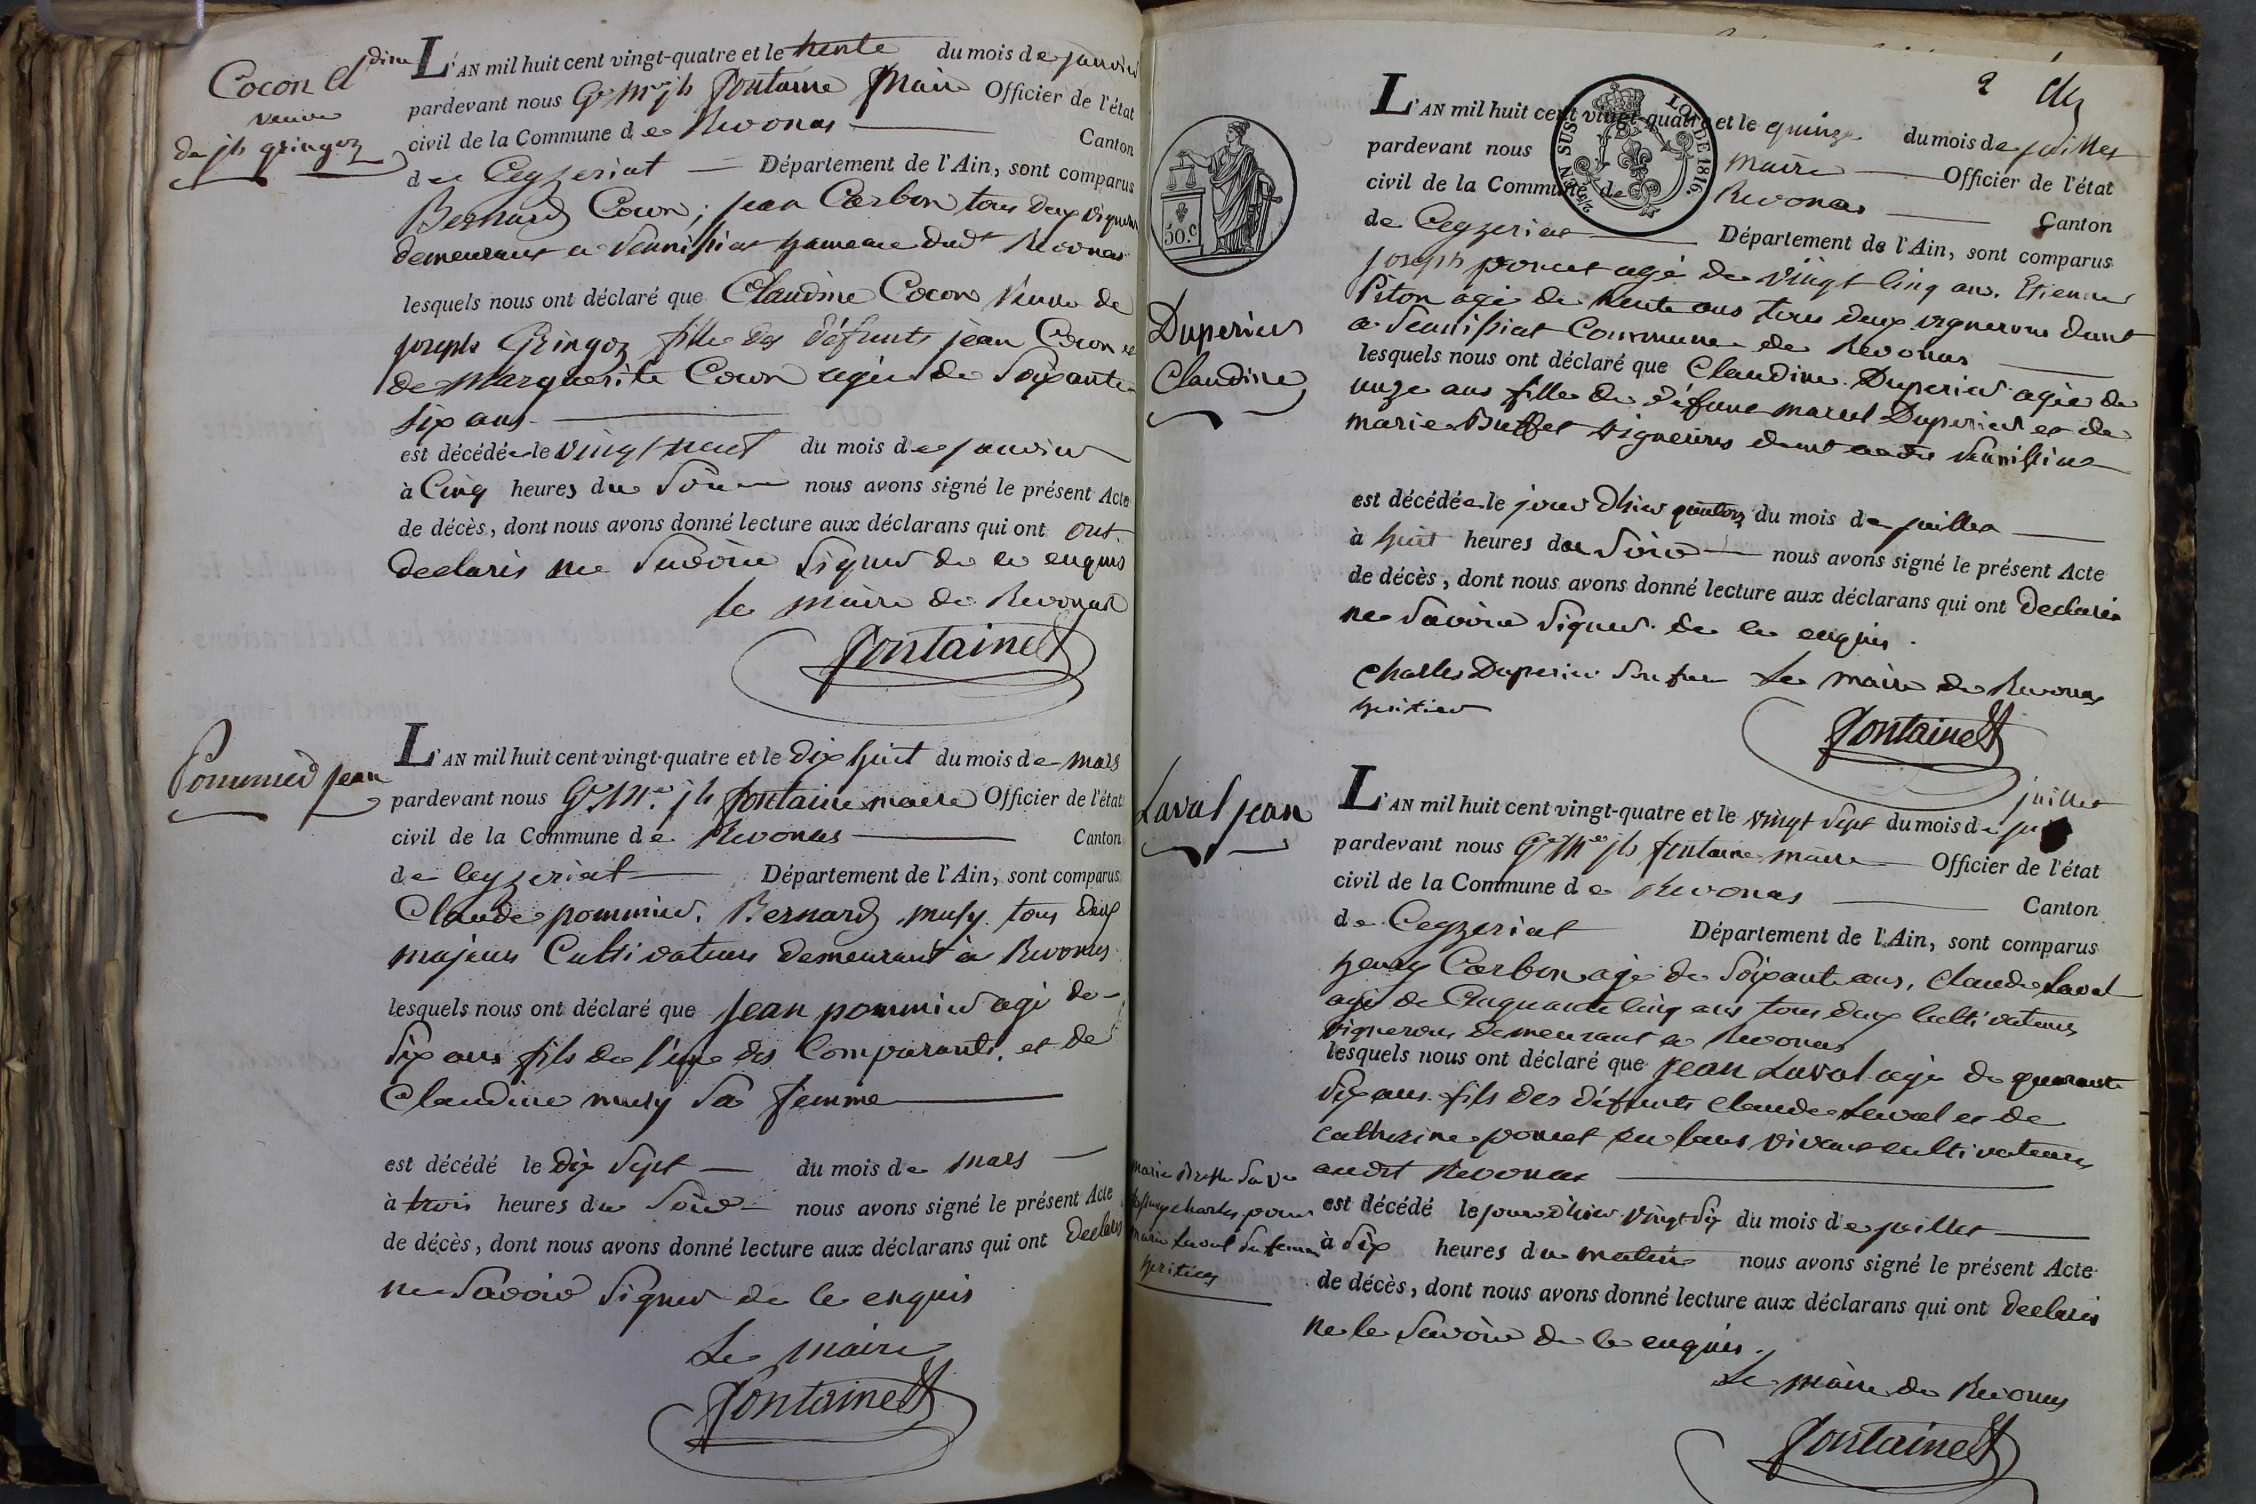 Cocon Cl.dine
veuve
de jh gringoz
L'AN mil huit cent vingt-quatre et le trente du mois de janvier
pardevant nous Gme Mie jh fontaine Maire Officier de l'état
civil de la Commune de Revonas Canton
de Ceyzeriat Département de l'Ain, sont comparus
Bernard Cocon, jean Carbon tous deux vignerons
demeurant a Senissiat hameau dudt Revonas
lesquels nous ont déclaré que Claudine Cocon veuve de
joseph Gringoz fille des défunts jean Cocon et
de Marguerite Cocon agée de soixante
six ans
est décédée le vingt neuf du mois de janvier
à Cinq heures du soir nous avons signé le présent Acte
de décès, dont nous avons donné lecture aux déclarans qui ont ont
declarés ne savoir signer de ce enquis
le maire de Revonas
fontaine
Pommier jean
L'AN mil huit cent vingt-quatre et le dix huit du mois de mars
pardevant nous Gme Mie jh fontaine maire Officier de l'état
civil de la Commune de Revonas Canton
de Ceyzeriat Département de l'Ain, sont comparus
Claude pommier, Bernard musy tous deux
majeurs Cultivateurs demeurant à Revonas
lesquels nous ont déclaré que jean pommier agé de
six ans fils de l'un des Comparants, et de
Claudine musy sa femme
est décédé le dix sept du mois de mars
à trois heures du soir nous avons signé le présent Acte
de décès, dont nous avons donné lecture aux déclarans qui ont declarés
ne savoir signer de ce enquis
Le maire
fontaine
2
TIMBRE SUS LOI DE 1816.
50.c
Duperier
Claudine
L'AN mil huit cent vingt-quatre et le quinze du mois de juillet
pardevant nous maire Officier de l'état
civil de la Commune de Revonas Canton
de Ceyzeriat Département de l'Ain, sont comparus
joseph poncet agé de vingt cinq ans, Etienne
Piton agé de trente ans tous deux vignerons demt
a Senissiat Commune de Revonas
lesquels nous ont déclaré que Claudine Duperier agée de
onze ans fille de défunt marcel Duperier et de
marie Buffet vignerons demt audit Senissiat
est décédée le jour d'hier quatorze du mois de juillet
à huit heures du soir nous avons signé le présent Acte
de décès, dont nous avons donné lecture aux déclarans qui ont declarés
ne savoir signer de ce enquis.
Charles Duperier son frere Le maire de Revonas
heritier
fontaine
Laval jean
juillet
L'AN mil huit cent vingt-quatre et le vingt sept du mois de
pardevant nous Gme Mie jh fontaine maire Officier de l'état
civil de la Commune de Revonas Canton
de Ceyzeriat Département de l'Ain, sont comparus
henry Carbon agé de soixante ans, Claude Laval
agé de Cinquante cinq ans tous deux Cultivateurs
vignerons demeurant a Revonas
lesquels nous ont déclaré que jean Laval agé de quarante
six ans fils des défunts Claude Laval et de
Catherine poncet en leurs vivant cultivateurs
audit Revonas
est décédé le jour d'hier vingt six du mois de juillet
à six heures du matin nous avons signé le présent Acte
de décès, dont nous avons donné lecture aux déclarans qui ont declarés
ne le savoir de ce enquis.
marie
charles pour
marie Laval sa femme
heritiers
Le maire de Revonas
fontaine